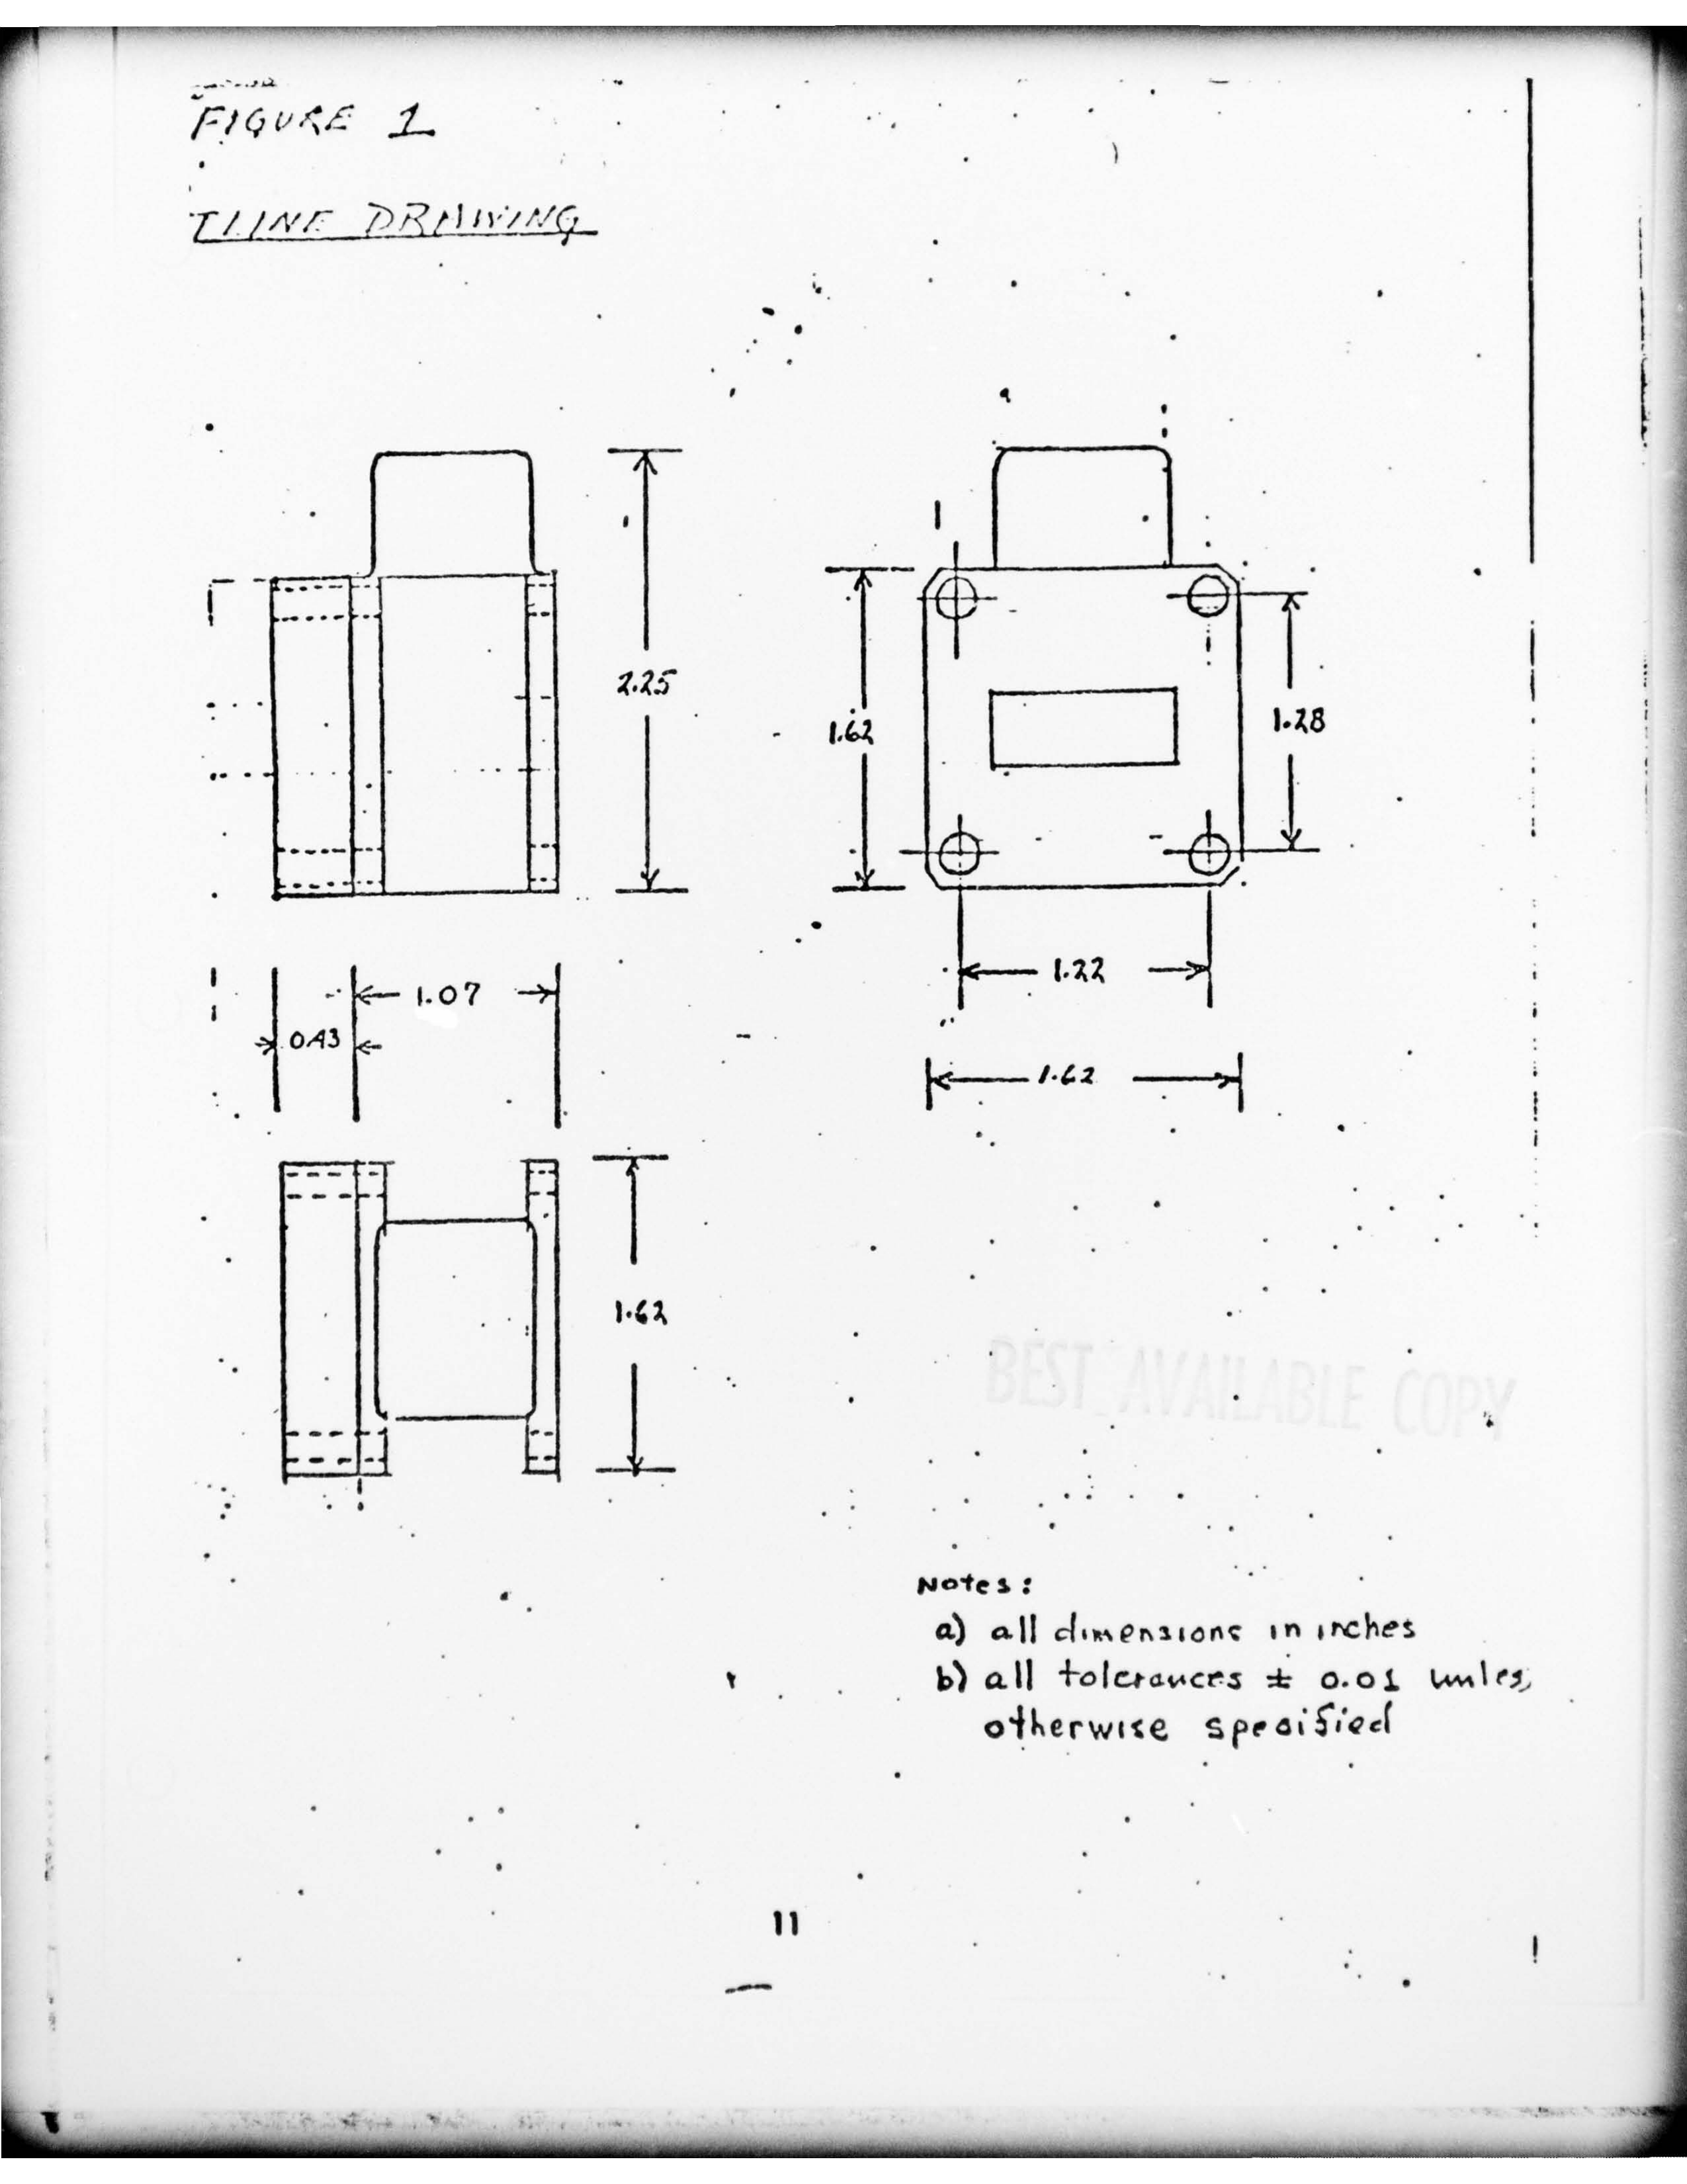 FIGURE 1
TLINE DRAWING
2.25
1.62
1.28
1.22
1.07
0.43
1.62
1.62
BEST AVAILABLE COPY
Notes:
a) all dimensions in inches
b) all tolerances ± 0.01 unles,
otherwise specified
11